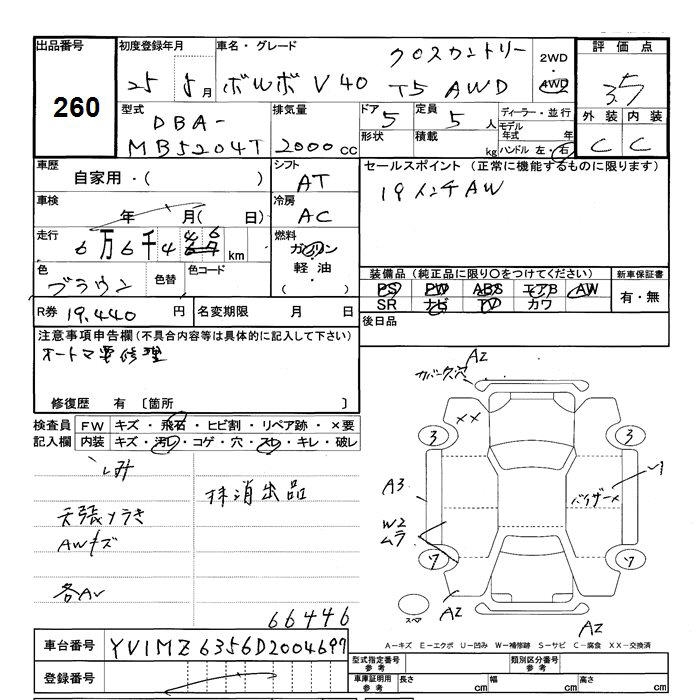 出品番号 初度登録年月 車名・グレード 評価点
260
25 5月 ボルボ V40 クロスカントリー T5 AWD 2WD AWD 3.5
型式 排気量 ドア 定員 ディーラー・並行 外装 内装
DBA-MB5204T 2000cc 5 5人 C C
形状 積載 kg モデル年式 年 ハンドル 左・右
車歴 シフト セールスポイント (正常に機能するものに限ります)
自家用・( ) AT 19インチAW
車検 冷房
年 月( 日) AC
走行 燃料
6万6千446 km ガソリン
軽油・
( )
色 色替 色コード
ブラウン
装備品 (純正品に限り○をつけてください) 新車保証書
PS PW ABS エアB AW 有・無
SR ナビ TV カワ
R券 19,440 円 名変期限 月 日 後日品
注意事項申告欄 (不具合内容等は具体的に記入して下さい)
オートマ要修理
修復歴 有 〔箇所 〕
検査員記入欄 FW キズ・飛石・ヒビ割・リペア跡・×要
内装 キズ・汚レ・コゲ・穴・スレ・キレ・破レ
シミ
抹消出品
天張りうき
AWキズ
各A
66446
A2
カバー欠穴
××
3 3
A3
バイザーX
W2
ムラ
7 7
スペア
A2
A2
A-キズ E-エクボ U-凹み W-補修跡 S-サビ C-腐食 XX-交換済
車台番号 YV1MZ6356D2004697
登録番号
型式指定番号 参考 類別区分番号 参考
車庫証明用 参考 長さ cm 幅 cm 高さ cm